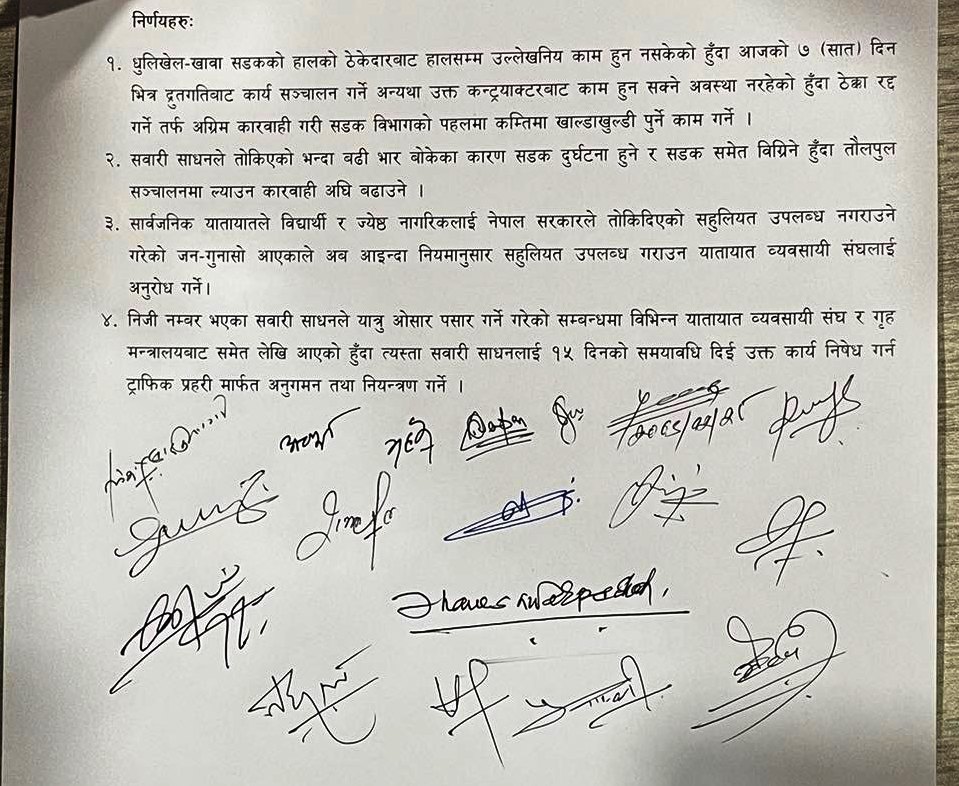 निर्णयहरुः
१. धुलिखेल-खावा सडकको हालको ठेकेदारबाट हालसम्म उल्लेखनिय काम हुन नसकेको हुँदा आजको ७ (सात) दिन
भित्र द्रुतगतिबाट कार्य सञ्चालन गर्ने अन्यथा उक्त कन्ट्रयाक्टरबाट काम हुन सक्ने अवस्था नरहेको हुँदा ठेक्का रद्द
गर्ने तर्फ अग्रिम कारवाही गरी सडक विभागको पहलमा कम्तिमा खाल्डाखुल्डी पुर्ने काम गर्ने ।
२. सवारी साधनले तोकिएको भन्दा बढी भार बोकेका कारण सडक दुर्घटना हुने र सडक समेत विग्रिने हुँदा तौलपुल
सञ्चालनमा ल्याउन कारवाही अघि बढाउने ।
३. सार्वजनिक यातायातले विद्यार्थी र ज्येष्ठ नागरिकलाई नेपाल सरकारले तोकिदिएको सहुलियत उपलब्ध नगराउने
गरेको जन-गुनासो आएकाले अब आइन्दा नियमानुसार सहुलियत उपलब्ध गराउन यातायात व्यवसायी संघलाई
अनुरोध गर्ने।
४. निजी नम्वर भएका सवारी साधनले यात्रु ओसार पसार गर्ने गरेको सम्बन्धमा विभिन्न यातायात व्यवसायी संघ र गृह
मन्त्रालयबाट समेत लेखि आएको हुँदा त्यस्ता सवारी साधनलाई १५ दिनको समयावधि दिई उक्त कार्य निषेध गर्न
ट्राफिक प्रहरी मार्फत अनुगमन तथा नियन्त्रण गर्ने ।